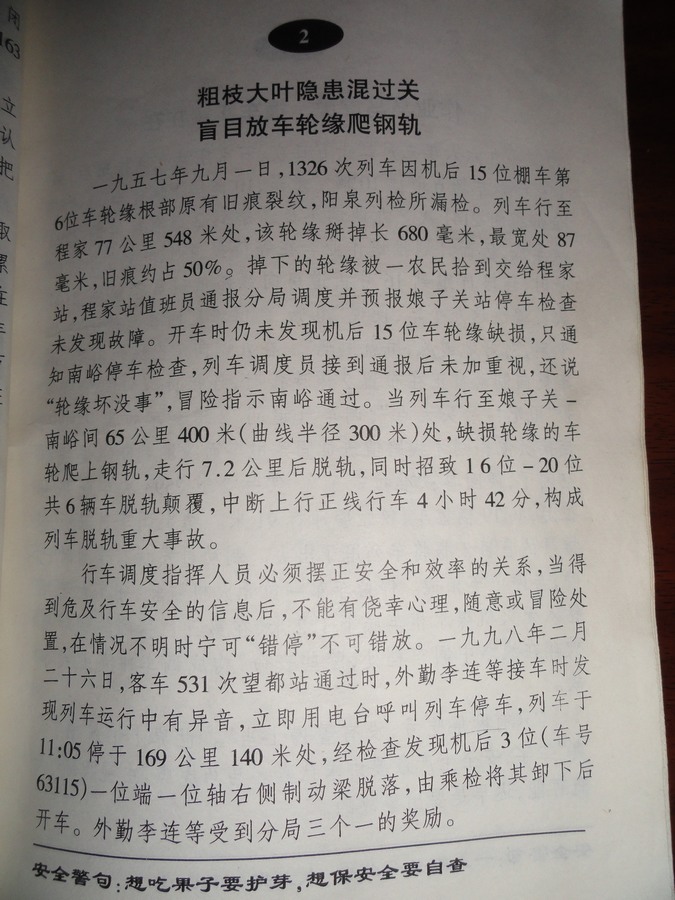 闭
163
立
认
把
2
粗枝大叶隐患混过关
盲目放车轮缘爬钢轨
一九五七年九月一日,1326 次列车因机后 15 位棚车第
6位车轮缘根部原有旧痕裂纹,阳泉列检所漏检。列车行至
程家 77 公里 548 米处,该轮缘掰掉长 680 毫米,最宽处 87
毫米,旧痕约占 50%。掉下的轮缘被一农民拾到交给程家
站,程家站值班员通报分局调度并预报娘子关站停车检查
未发现故障。开车时仍未发现机后 15 位车轮缘缺损,只通
知南峪停车检查,列车调度员接到通报后未加重视,还说
“轮缘坏没事”,冒险指示南峪通过。当列车行至娘子关-
南峪间 65 公里 400 米(曲线半径 300 米)处,缺损轮缘的车
轮爬上钢轨,走行 7.2 公里后脱轨,同时招致 16 位-20 位
共6辆车脱轨颠覆,中断上行正线行车 4 小时 42 分,构成
列车脱轨重大事故。
行车调度指挥人员必须摆正安全和效率的关系,当得
到危及行车安全的信息后,不能有侥幸心理,随意或冒险处
置,在情况不明时宁可“错停”不可错放。一九九八年二月
二十六日,客车 531 次望都站通过时,外勤李连等接车时发
现列车运行中有异音,立即用电台呼叫列车停车,列车于
11:05 停于 169 公里 140 米处,经检查发现机后 3 位(车号
63115)一位端一位轴右侧制动梁脱落,由乘检将其卸下后
开车。外勤李连等受到分局三个一的奖励。
安全警句:想吃果子要护芽,想保安全要自查